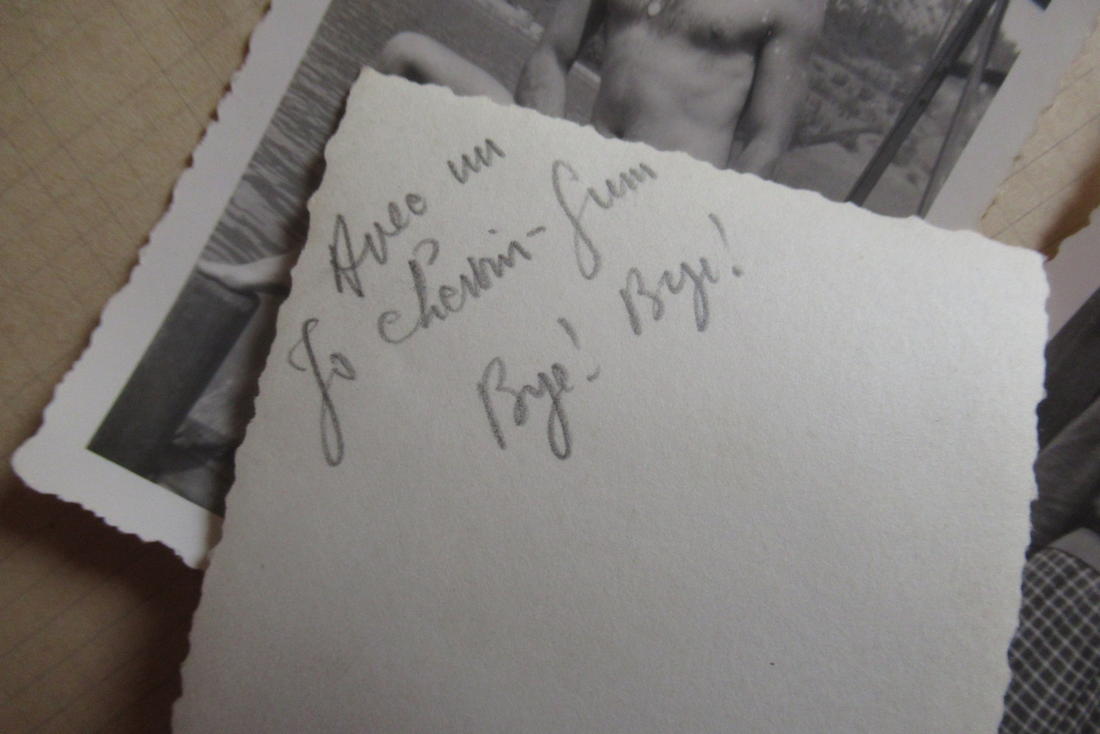 Avec un
Jo chewin-Gum
Bye! Bye!